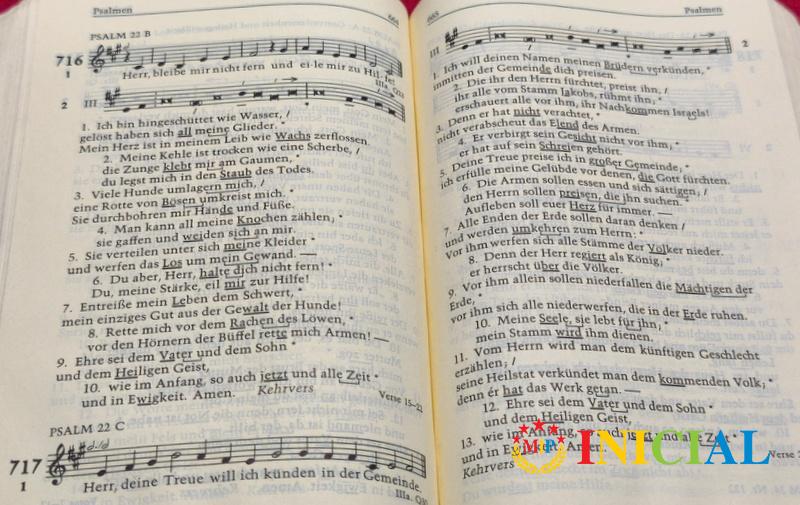 Psalmen
664
PSALM 22 B
716
1
Herr, bleibe mir nicht fern und ei-le mir zu Hil-fe!
IIIa
2 III
1. Ich bin hingeschüttet wie Wasser, /
gelöst haben sich all meine Glieder. *
Mein Herz ist in meinem Leib wie Wachs zerflossen.
2. Meine Kehle ist trocken wie eine Scherbe, /
die Zunge klebt mir am Gaumen, *
du legst mich in den Staub des Todes.
3. Viele Hunde umlagern mich, /
eine Rotte von Bösen umkreist mich. *
Sie durchbohren mir Hände und Füße.
4. Man kann all meine Knochen zählen; *
sie gaffen und weiden sich an mir.
5. Sie verteilen unter sich meine Kleider *
und werfen das Los um mein Gewand. —
6. Du aber, Herr, halte dich nicht fern! *
Du, meine Stärke, eil mir zu Hilfe!
7. Entreiße mein Leben dem Schwert, *
mein einziges Gut aus der Gewalt der Hunde!
8. Rette mich vor dem Rachen des Löwen, *
vor den Hörnern der Büffel rette mich Armen! —
9. Ehre sei dem Vater und dem Sohn *
und dem Heiligen Geist,
10. wie im Anfang, so auch jetzt und alle Zeit *
und in Ewigkeit. Amen. Kehrvers
Verse 15-22
PSALM 22 C
717
1
Herr, deine Treue will ich künden in der Gemeinde.
IIIa.
665
Psalmen
III
2
1. Ich will deinen Namen meinen Brüdern verkünden, *
inmitten der Gemeinde dich preisen.
2. Die ihr den Herrn fürchtet, preist ihn, /
ihr alle vom Stamm Jakobs, rühmt ihn; *
erschauert alle vor ihm, ihr Nachkommen Israels!
3. Denn er hat nicht verachtet, *
nicht verabscheut das Elend des Armen.
4. Er verbirgt sein Gesicht nicht vor ihm; *
er hat auf sein Schreien gehört.
5. Deine Treue preise ich in großer Gemeinde; *
ich erfülle meine Gelübde vor denen, die Gott fürchten.
6. Die Armen sollen essen und sich sättigen; /
den Herrn sollen preisen, die ihn suchen. *
Aufleben soll euer Herz für immer. —
7. Alle Enden der Erde sollen daran denken /
und werden umkehren zum Herrn: *
Vor ihm werfen sich alle Stämme der Völker nieder.
8. Denn der Herr regiert als König; *
er herrscht über die Völker.
9. Vor ihm allein sollen niederfallen die Mächtigen der
Erde, *
vor ihm sich alle niederwerfen, die in der Erde ruhen.
10. Meine Seele, sie lebt für ihn; *
mein Stamm wird ihm dienen.
11. Vom Herrn wird man dem künftigen Geschlecht
erzählen; /
seine Heilstat verkündet man dem kommenden Volk; *
denn er hat das Werk getan. —
12. Ehre sei dem Vater und dem Sohn *
und dem Heiligen Geist,
13. wie im Anfang, so auch jetzt und alle Zeit *
und in Ewigkeit. Amen.
Kehrvers
MP
INICIAL